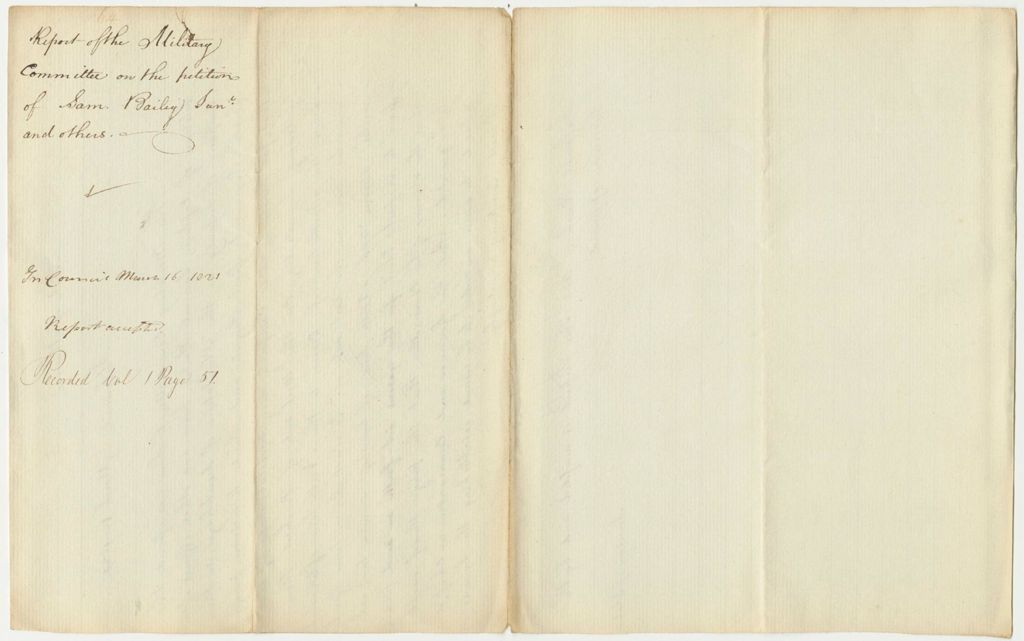 64
Report of the Military
Committee on the petition
of Sam. Bailey Junr.
and others.
In Council March 16 1821
Report accepted.
Recorded Vol 1 Page 51